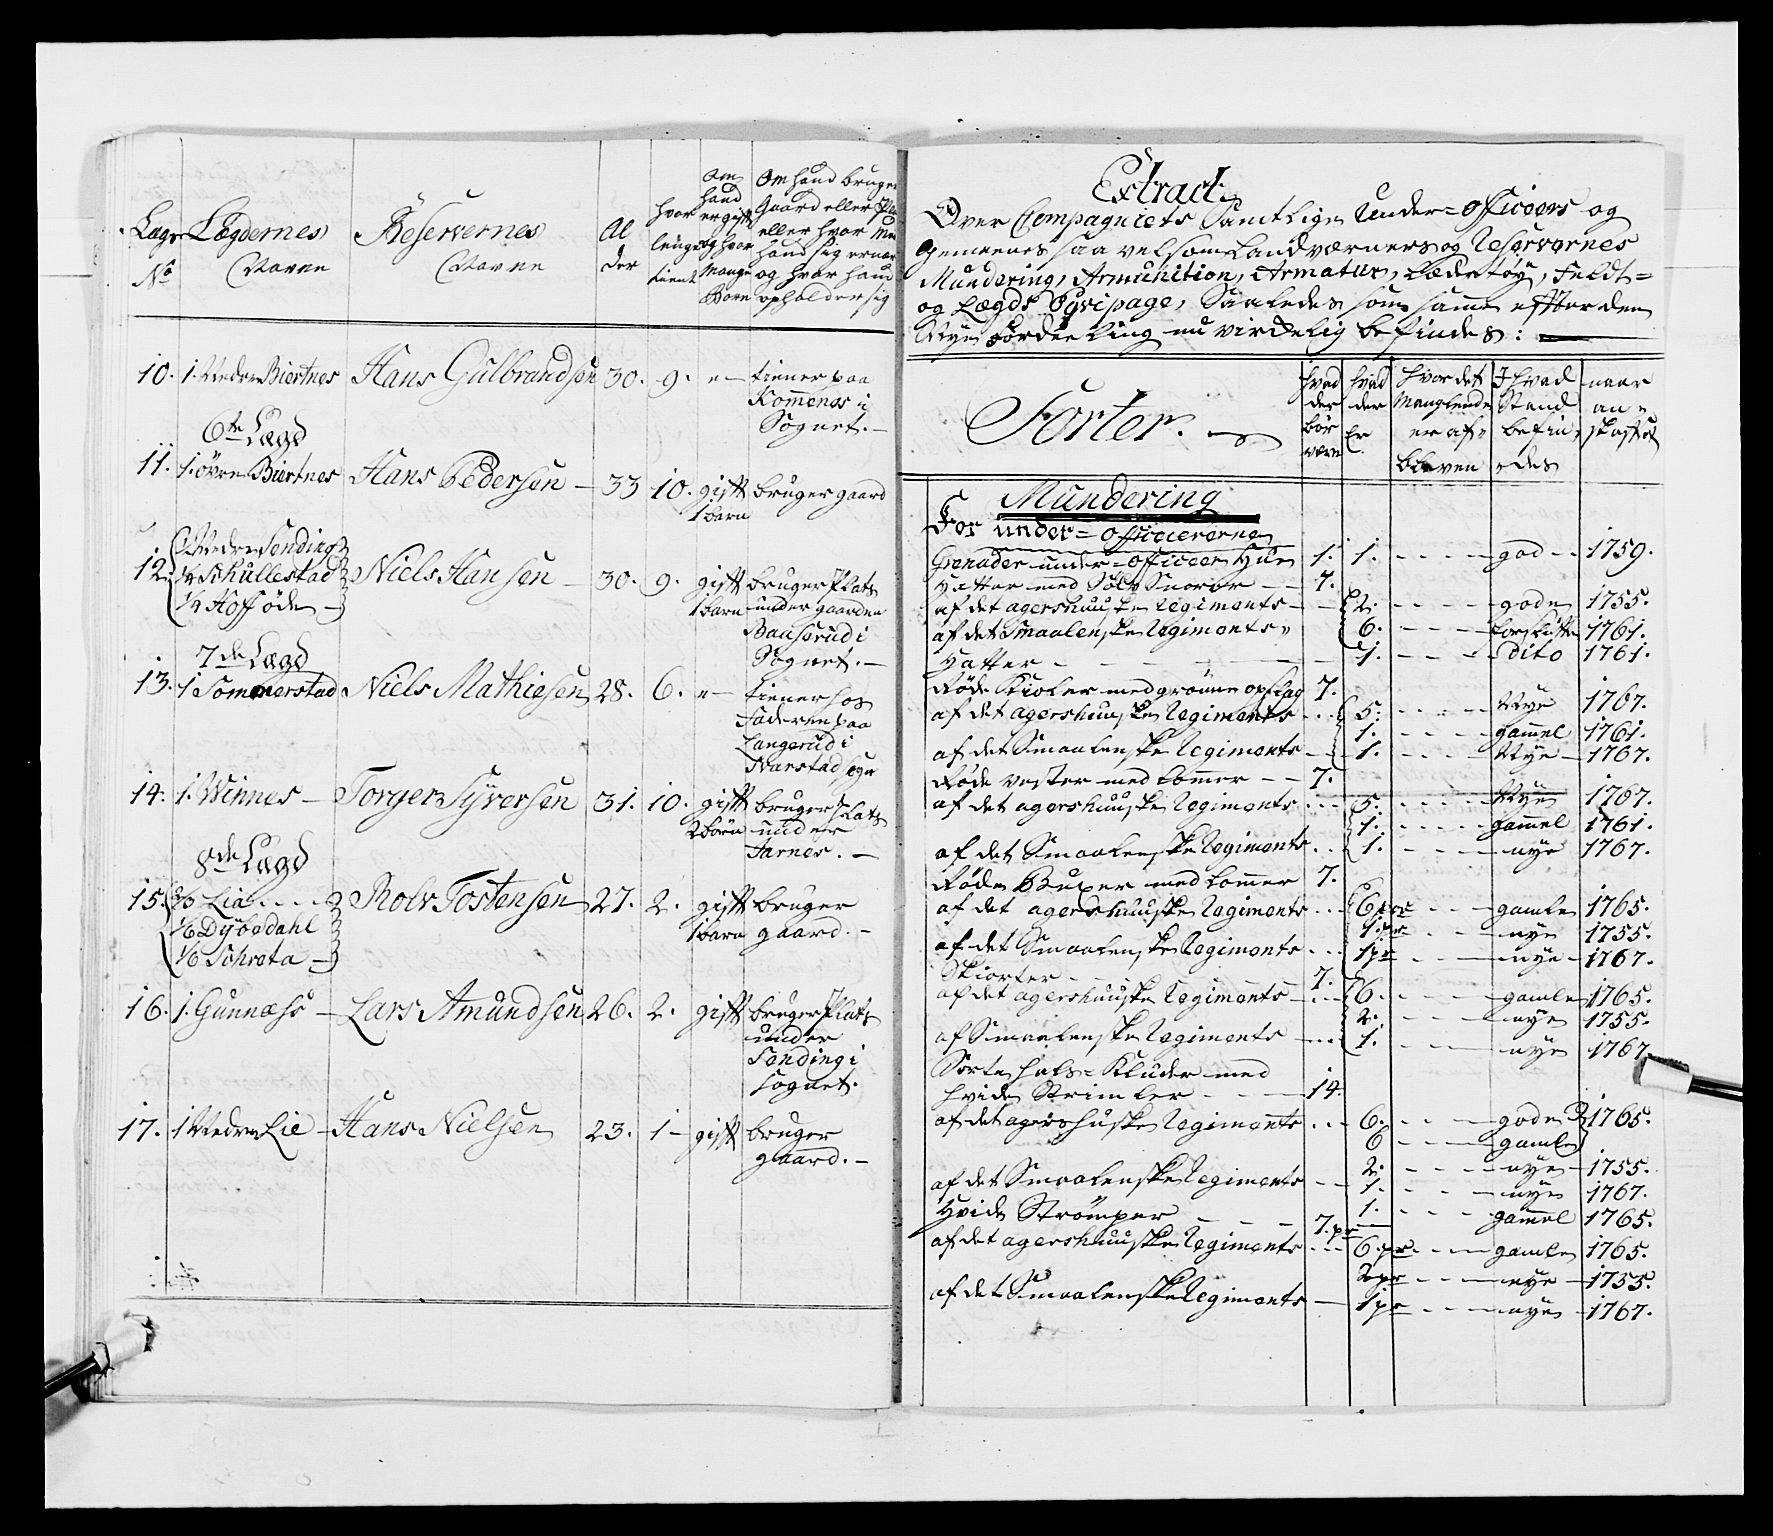 Lægs No
Lægdernes Navne
Reservernes Navne
Al der
hvor lenge tient
om hand er gift og hvor mange Børn
om hand bruger Gaard eller Pla eller hvor hand sig ernær og hvor hand opholder sig
10. 1. Nedre Biertnes Hans Gulbrandsen 30. 9. "— tiener paa
Komenæs i
Sognet.—
6te Lægd
11. 1. øvre Biertnes Hans Pedersen — 33 10. gift bruger gaard
1 barn
Nedre Sonding
12. ¼ Schullestad Niels Hansen — 30. 9. gift bruger Plats
¼ Hoff øde — 1 barn under gaarden
Bauserud i
Sognet.—
7de Lægd
13. 1 Sommerstad Niels Mathiesen 28. 6. "— tiener hos
Faderen paa
Langerud i
Svarstad Sogn
14. 1. Winnes — Torger Syversen 31. 10. gift bruger Plats
2 børn under
Jarnes. —
8de Lægd
15. ⅔ Lia Rolv Tostensen 27. 2. gift bruger
⅙ Dybedahl 1 barn gaard.—
⅙ Schrota —
16. 1. Gunnæss — Lars Amundsen 26. 2. gift bruger Plats
under
Sonding i
sognet.
17. 1 Nedre Lie — Hans Nielsen 23. 1 — gift bruger
gaard.—
Extract
Over Compagniets Samtlige Under-officeers og
Gemeenes saa vel som Landværners og Reservernes
Mundering, Ammunition, Armatur, Lædertøy, Feldt-
og Lægds Eqvipage, Saaledes som samme efter den
Nye Fordeeling nu virkelig befindes: —
Sorter. —
hvad der bør være
hvad der Er.
hvor det Manglende er af bleven
I hvad Stand befindes
naar an skaffet
Mundering
For under-officiererne
Grenadeer under-officeer Hue 1. 1. god 1759.
Hatter med Sølv Snorer 7.
af det agershuuske Regiments 2. gode 1755.
af det Smaalenske Regiments 6. forslidte 1761.
Hatter 1. dito 1761.
Røde Kioler med grønne opslag 7.
af det agershuuske Regiments 5. Nye 1767.
1. gammel 1761.
af det Smaalenske Regiments 1. Nye 1767.
Røde vester med Lommer 7.
af det agershuuske Regiments 5. Nye 1767.
1. gammel 1761.
af det Smaalenske Regiments 1. nye 1767.
Røde Buxer med Lommer 7.
af det agershuuske Regiments 6 par gamle 1765.
1 pr nye 1755.
af det Smaalenske Regiments 1 pr nye 1767.
Skiorter 7.
af det agershuuske Regiments 6. gamle 1765.
2. nye 1755.
af Smaalenske Regiments 1. nye 1767
Sorte Hals-Kluder med
hvide Strimler 14.
af det agershuske Regiments 6. gode 1765.
6 gamle
2. nye 1755.
af det Smaalenske Regiments 1. nye 1767.
Hvide Strømper 7. pr 1. gammel 1765.
af det agershuuske Regiments 6 pr gamle 1765.
2 pr nye 1755.
af det Smaalenske Regiments 1 pr nye 1767.